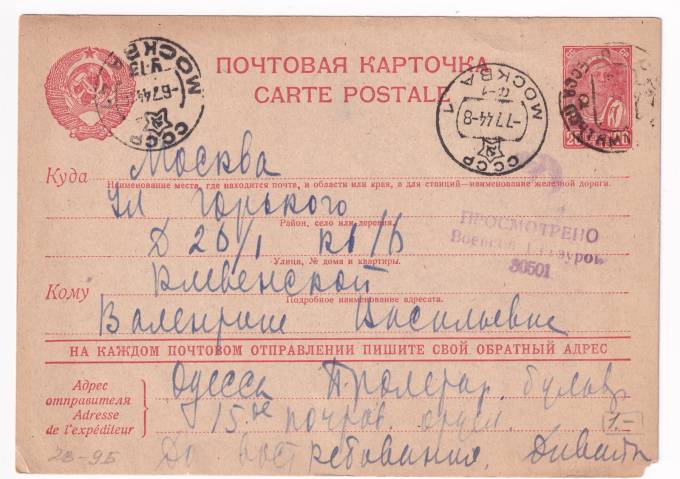 ПОЧТОВАЯ КАРТОЧКА
CARTE POSTALE
СССР МОСКВА -6.7.44
СССР МОСКВА 1 -7.7.44-8
Куда Москва
Наименование места, где находится почта, и области или края, а для станций—наименование железной дороги.
Ул Горького
Район, село или деревня.
Д 26/1 кв 16
Улица, № дома и квартиры.
ПРОСМОТРЕНО
Военной Цензурой
30501
Кому
Подробное наименование адресата.
Валентине Васильевне
НА КАЖДОМ ПОЧТОВОМ ОТПРАВЛЕНИИ ПИШИТЕ СВОЙ ОБРАТНЫЙ АДРЕС
Адрес отправителя
Adresse de l'expéditeur
Одесса Пролетар. бульв
15ое почтов. отдел.
До востребования.
1.-
28-95